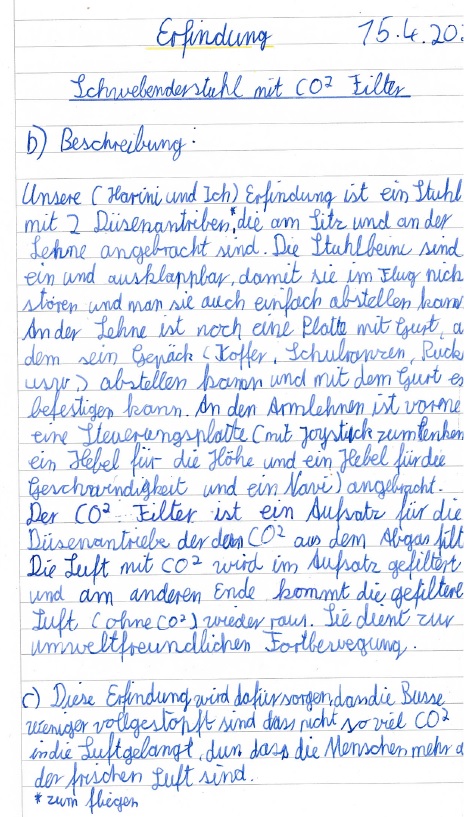 Erfindung 15.4.20:
Schwebenderstuhl mit CO² Filter
b) Beschreibung:
Unsere (Harini und Ich) Erfindung ist ein Stuhl
mit 2 Düsenantrieben,* die am Sitz und an der
Lehne angebracht sind. Die Stuhlbeine sind
ein und ausklappbar, damit sie im Flug nich
stören und man sie auch einfach abstellen kann
An der Lehne ist noch eine Platte mit Gurt, a
dem sein Gepäck (Koffer, Schulranzen, Ruck
usw.) abstellen kann und mit dem Gurt es
befestigen kann. An den Armlehnen ist vorne
eine Steuerungsplatte (mit Joystick zum lenken
ein Hebel für die Höhe und ein Hebel für die
Geschwindigkeit und ein Navi) angebracht.
Der CO² Filter ist ein Aufsatz für die
Düsenantriebe der den CO² aus dem Abgas filt
Die Luft mit CO² wird im Aufsatz gefiltert
und am anderen Ende kommt die gefilterte
Luft (ohne CO²) wieder raus. Sie dient zur
umweltfreundlichen Fortbewegung.
c) Diese Erfindung wird dafür sorgen, dass die Busse
weniger vollgestopft sind dass nicht so viel CO²
in die Luft gelangt, dass die Menschen mehr a
der frischen Luft sind.
* zum fliegen